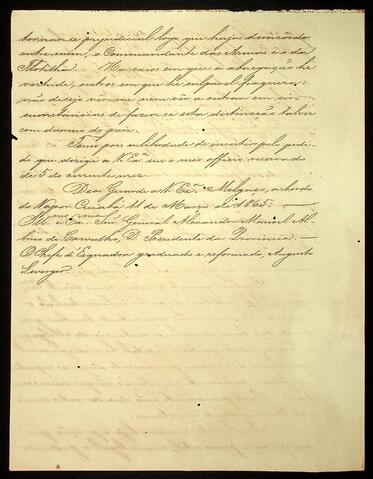 tornar-se prejudicial logo que haja desaccordo
entre mim, o Commandante das Armas e o da
Flotilha. Ha casos em que a abnegação he
virtude, outros em que he culpavel fraqueza:
não desejo ver-me nem vêr a outrem em cir-
cumstancias de fazer-se esta distincção talvez
com damno do paiz.
Tomo pois a liberdade de insistir pelo pedi-
do que dirigi a V. Exª em o meu officio reservado
de 5 do corrente mez.
Deos Guarde a V. Exª. Melgaço, a bordo
do Vapor Corumbá 11 de Março de 1865.
Illmo e Exmo Snr. General Alexandre Manoel Al-
bino de Carvalho, D. Presidente da Provincia. —
O Chefe d'Esquadra graduado e reformado, Augusto
Leverger